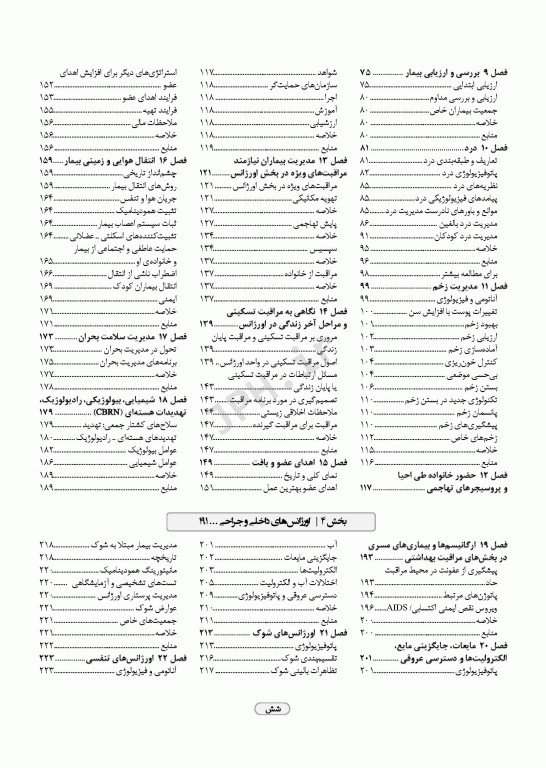 فصل ۹ بررسی و ارزیابی بیمار ۷۵
ارزیابی ابتدایی ۷۵
ارزیابی و بررسی مداوم ۸۰
جمعیت بیماران خاص ۸۰
خلاصه ۸۰
منابع ۸۰
فصل ۱۰ درد ۸۱
تعاریف و طبقه‌بندی درد ۸۱
پاتوفیزیولوژی درد ۸۲
نظریه‌های درد ۸۵
پیامدهای فیزیولوژیکی درد ۸۵
موانع و باورهای نادرست مدیریت درد ۸۵
مدیریت درد بالغین ۸۶
مدیریت درد کودکان ۹۱
خلاصه ۹۵
منابع ۹۶
برای مطالعه بیشتر ۹۸
فصل ۱۱ مدیریت زخم ۹۹
آناتومی و فیزیولوژی ۹۹
تغییرات پوست با افزایش سن ۱۰۰
بهبود زخم ۱۰۱
ارزیابی زخم ۱۰۲
آماده‌سازی زخم ۱۰۳
کنترل خون‌ریزی ۱۰۴
بی‌حسی موضعی ۱۰۴
بستن زخم ۱۰۶
تکنولوژی جدید در بستن زخم ۱۱۰
پانسمان زخم ۱۱۰
پیشگیری‌های زخم ۱۱۰
زخم‌های خاص ۱۱۲
خلاصه ۱۱۵
منابع ۱۱۶
فصل ۱۲ حضور خانواده طی احیا
و پروسیجرهای تهاجمی ۱۱۷
شواهد ۱۱۷
سازمان‌های حمایت‌گر ۱۱۸
اجرا ۱۱۸
آموزش ۱۱۸
ارزشیابی ۱۱۸
خلاصه ۱۱۸
منابع ۱۱۹
فصل ۱۳ مدیریت بیماران نیازمند
مراقبت‌های ویژه در بخش اورژانس ۱۲۱
مراقبت‌های ویژه در بخش اورژانس ۱۲۱
تهویه مکانیکی ۱۲۱
خلاصه ۱۲۷
پایش تهاجمی ۱۲۷
خلاصه ۱۳۴
سپسیس ۱۳۴
خلاصه ۱۳۷
مراقبت از خانواده ۱۳۷
خلاصه ۱۳۷
منابع ۱۳۷
فصل ۱۴ نگاهی به مراقبت تسکینی
و مراحل آخر زندگی در اورژانس ۱۳۹
مروری بر مراقبت تسکینی و مراقبت پایان
زندگی ۱۳۹
اصول مراقبت تسکینی در واحد اورژانس ۱۳۹
مسائل ارتباطات در مراقبت تسکینی
یا پایان زندگی ۱۴۳
تصمیم‌گیری در مورد برنامه مراقبت ۱۴۳
ملاحظات اخلاقی زیستی ۱۴۴
مراقبت برای مراقبت گیرنده ۱۴۷
خلاصه ۱۴۷
منابع ۱۴۷
فصل ۱۵ اهدای عضو و بافت ۱۴۹
نمای کلی و تاریخ ۱۴۹
اهدای عضو بهترین عمل ۱۵۱
استراتژی‌های دیگر برای افزایش اهدای
عضو ۱۵۲
فرایند اهدای عضو ۱۵۳
فرایند تهیه ۱۵۵
ملاحظات مالی ۱۵۶
خلاصه ۱۵۶
منابع ۱۵۶
فصل ۱۶ انتقال هوایی و زمینی بیمار ۱۵۹
چشم‌انداز تاریخی ۱۵۹
روش‌های انتقال بیمار ۱۵۹
جریان هوا و تنفس ۱۶۴
تثبیت همودینامیک ۱۶۴
ثبات سیستم اعصاب بیمار ۱۶۴
تثبیت‌کننده‌های اسکلتی ـ عضلانی ۱۶۴
حمایت عاطفی و اجتماعی از بیمار
و خانواده‌ی او ۱۶۵
اضطراب ناشی از انتقال ۱۶۶
انتقال بیماران کودک ۱۶۹
ایمنی ۱۶۹
خلاصه ۱۷۱
منابع ۱۷۱
فصل ۱۷ مدیریت سلامت بحران ۱۷۳
تحول در مدیریت بحران ۱۷۳
برنامه‌های مدیریت بحران ۱۷۵
خلاصه ۱۷۷
منابع ۱۷۸
فصل ۱۸ شیمیایی، بیولوژیکی، رادیولوژیک،
تهدیدات هسته‌ای (CBRN) ۱۷۹
سلاح‌های کشتار جمعی: تهدید ۱۷۹
تهدیدهای هسته‌ای ـ رادیولوژیک ۱۸۰
عوامل بیولوژیک ۱۸۲
عوامل شیمیایی ۱۸۶
خلاصه ۱۸۹
منابع ۱۸۹
بخش ۴ | اورژانس‌های داخلی و جراحی ... ۱۹۱
فصل ۱۹ ارگانیسم‌ها و بیماری‌های مسری
در بخش‌های مراقبت بهداشتی ۱۹۳
پیشگیری از عفونت در محیط مراقبت
حاد ۱۹۳
پاتوژن‌های مرتبط ۱۹۴
ویروس نقص ایمنی اکتسابی/ AIDS ۱۹۶
خلاصه ۲۰۰
منابع ۲۰۰
فصل ۲۰ مایعات، جایگزینی مایع،
الکترولیت‌ها و دسترسی عروقی ۲۰۱
پاتوفیزیولوژی ۲۰۱
آب ۲۰۱
جایگزینی مایعات ۲۰۲
الکترولیت‌ها ۲۰۳
اختلالات آب و الکترولیت ۲۰۵
دسترسی عروقی و پاتوفیزیولوژی ۲۰۹
خلاصه ۲۱۰
منابع ۲۱۱
فصل ۲۱ اورژانس‌های شوک ۲۱۳
پاتوفیزیولوژی ۲۱۳
تقسیم‌بندی شوک ۲۱۶
تظاهرات بالینی شوک ۲۱۷
مدیریت بیمار مبتلا به شوک ۲۱۸
تاریخچه ۲۱۸
مانیتورینگ همودینامیک ۲۲۰
تست‌های تشخیصی و آزمایشگاهی ۲۲۰
مدیریت پرستاری اورژانس ۲۲۰
عوارض شوک ۲۲۱
جمعیت‌های خاص ۲۲۱
خلاصه ۲۲۱
منابع ۲۲۲
فصل ۲۲ اورژانس‌های تنفسی ۲۲۳
آناتومی و فیزیولوژی ۲۲۳
شش